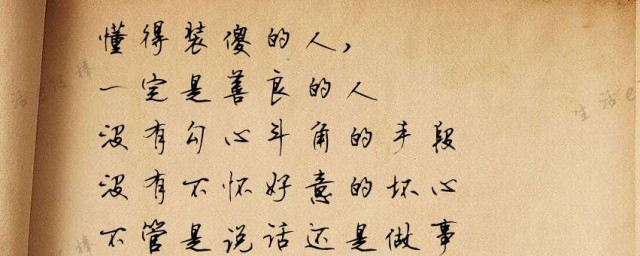 懂得装傻的人,
一定是善良的人
没有勾心斗角的手段
没有不怀好意的坏心
不管是说话还是做事